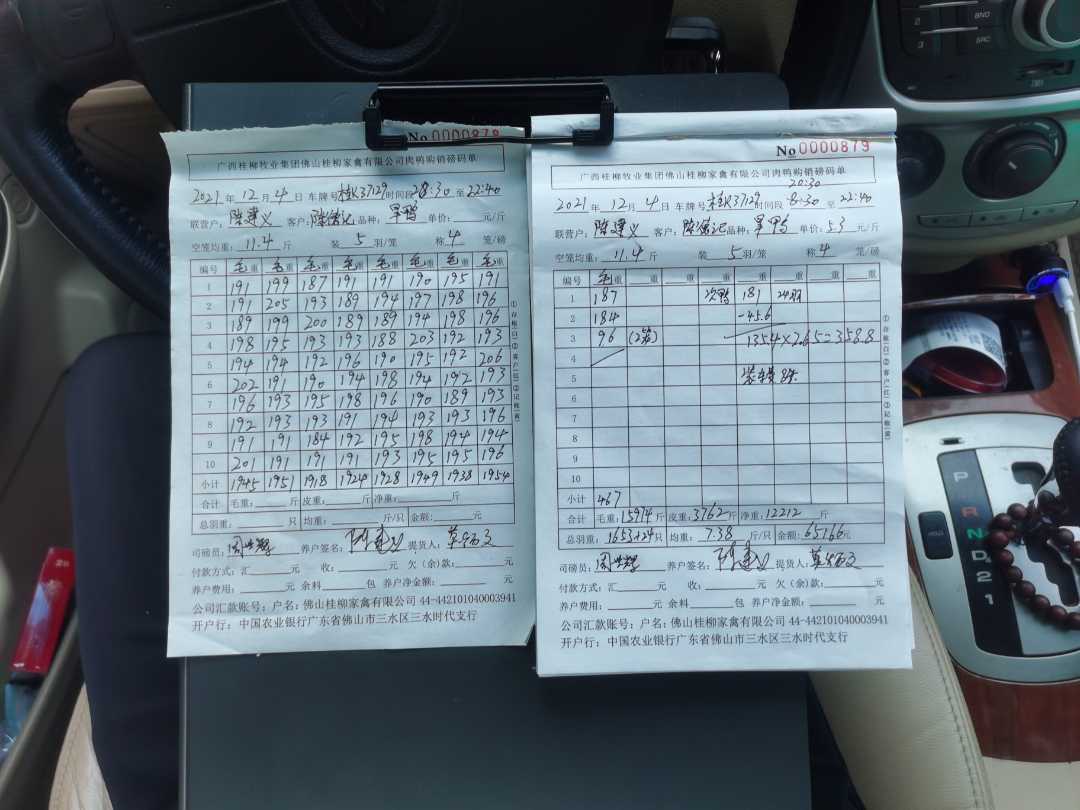 No 0000878
广西桂柳牧业集团佛山桂柳家禽有限公司肉鸭购销磅码单
2021 年 12 月 4 日 车牌号 桂K37129 时间段 20:30 至 22:40
联营户: 陈建义 客户: 陈锦记 品种: 旱鸭 单价: 元/斤
空笼均重: 11.4 斤 装 5 羽/笼 称 4 笼/磅
编号 毛重 毛重 毛重 毛重 毛重 毛重 毛重 毛重
1 191 199 187 191 191 190 195 191
2 191 205 193 189 194 197 198 196
3 189 199 200 189 189 194 198 196
4 198 195 193 193 188 203 192 193
5 194 194 192 196 190 195 192 206
6 202 191 190 194 198 194 192 193
7 196 193 195 198 196 190 189 193
8 192 193 193 191 194 193 193 196
9 191 191 184 192 195 198 194 194
10 201 191 191 191 193 195 195 196
小计 1945 1951 1918 1924 1928 1949 1938 1954
合计 毛重: 斤 皮重: 斤 净重: 斤
总羽重: 只 均重: 斤/只 金额: 元
司磅员: 养户签名: 陈建义 提货人:
付款方式: 汇 元 收: 元 欠(余)款: 元
养户费用: 元 余料 包 养户净金额: 元
公司汇款账号: 户名: 佛山桂柳家禽有限公司 44-442101040003941
开户行: 中国农业银行广东省佛山市三水区三水时代支行
①存根(白)②客户(红)③记账(黄)
No 0000879
广西桂柳牧业集团佛山桂柳家禽有限公司肉鸭购销磅码单
20:30
2021 年 12 月 4 日 车牌号 桂K37129 时间段 8:30 至 22:40
联营户: 陈建义 客户: 陈锦记 品种: 旱鸭 单价: 5.3 元/斤
空笼均重: 11.4 斤 装 5 羽/笼 称 4 笼/磅
编号 毛重 重 重 重 重 重 重 重
1 187 次鸭 181 24羽
2 184 -45.6
3 96 (2笼) 135.4×2.65=358.8
4
5
6
7
8
9
10
小计 467
合计 毛重: 15914 斤 皮重: 3762 斤 净重: 12212 斤
总羽重: 1653+24 只 均重: 7.38 斤/只 金额: 65166 元
司磅员: 养户签名: 陈建义 提货人:
付款方式: 汇 元 收: 元 欠(余)款: 元
养户费用: 元 余料 包 养户净金额: 元
公司汇款账号: 户名: 佛山桂柳家禽有限公司 44-442101040003941
开户行: 中国农业银行广东省佛山市三水区三水时代支行
①存根(白)②客户(红)③记账(黄)
2 BND
3 SRC
P
R
N
D
2
1